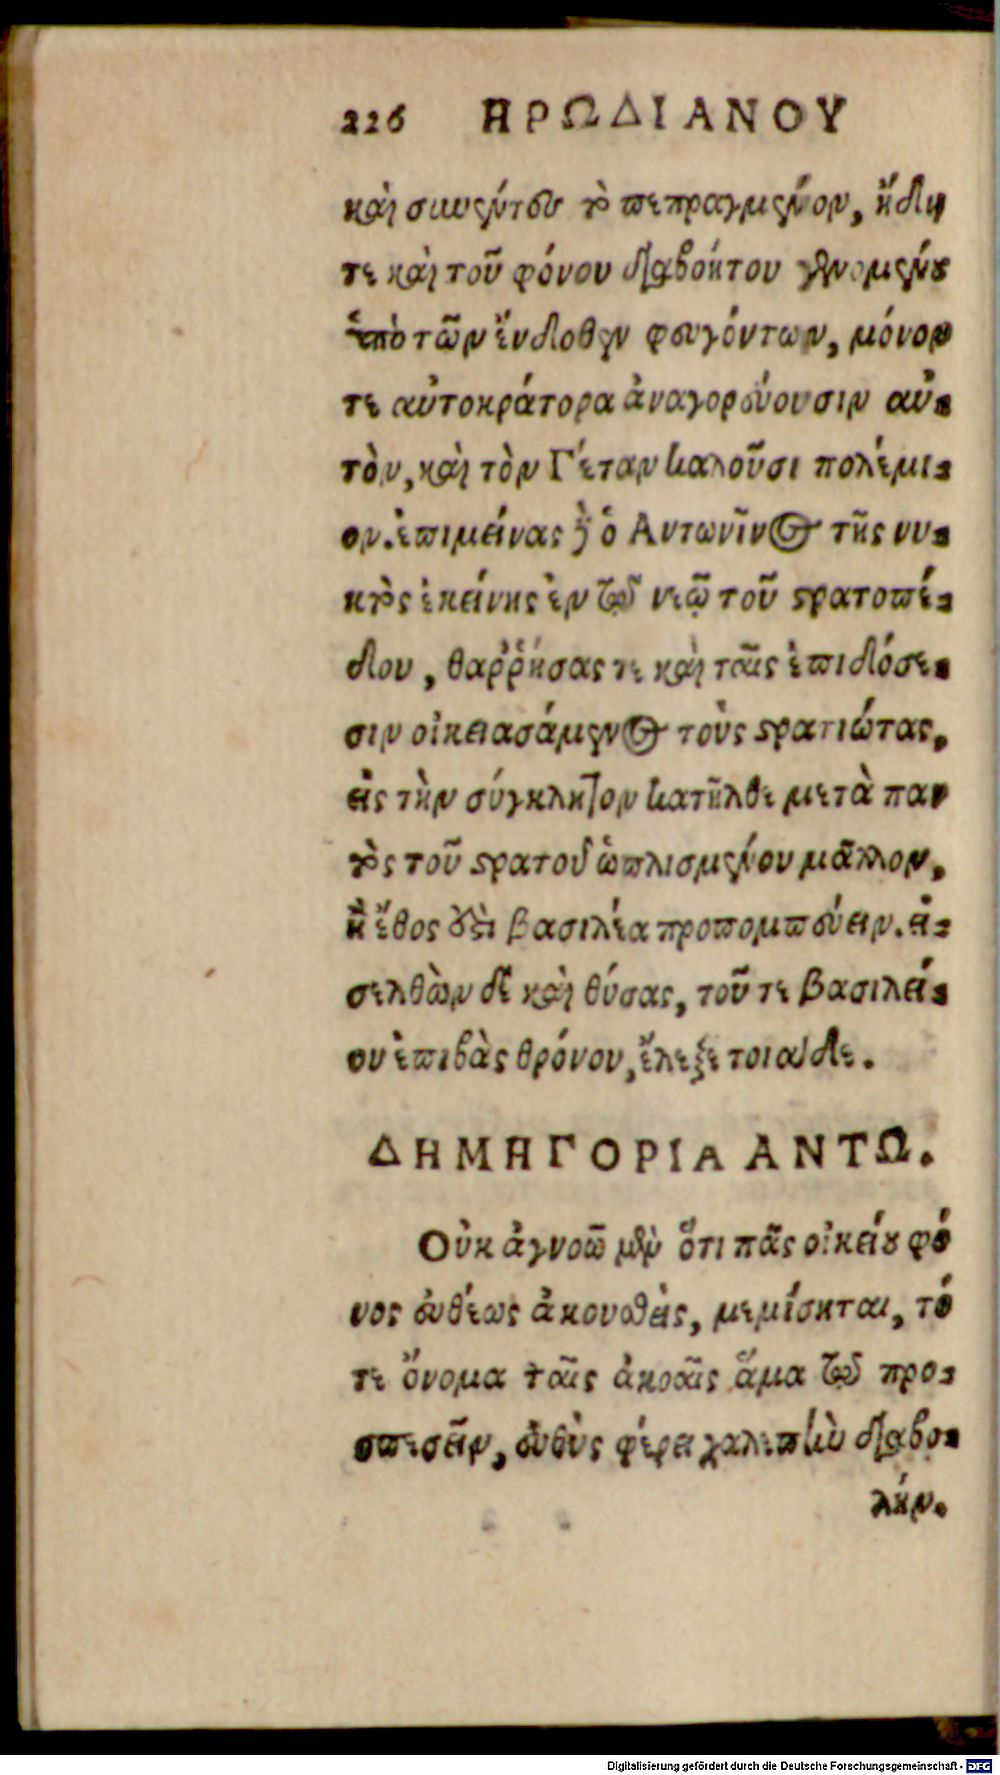 226 ΗΡΩΔΙΑΝΟΥ
καὶ συνέντες τὸ πεπραγμένον, ἤδη
τε καὶ τοῦ φόνου διαβοήτου γενομένου
ὑπὸ τῶν ἔνδοθεν φευγόντων, μόνον
τε αὐτοκράτορα ἀναγορεύουσιν αὐ-
τὸν, καὶ τὸν Γέταν καλοῦσι πολέμι-
ον. ἐπιμείνας δὲ ὁ Αντωνῖνος τῆς νυ-
κτὸς ἐκείνης ἐν τῷ νεῷ τοῦ στρατοπέ-
δου, θαῤῥήσας τε καὶ ταῖς ἐπιδόσε-
σιν οἰκειασάμενος τοὺς στρατιώτας,
εἰς τὴν σύγκλητον κατῆλθε μετὰ παν
τὸς τοῦ στρατοῦ ὡπλισμένου μᾶλλον,
ἢ ἔθος ἐστὶ βασιλέα προπομπεύειν. εἰ-
σελθὼν δὲ καὶ θύσας, τοῦ τε βασιλεί-
ου ἐπιβὰς θρόνου, ἔλεξε τοιάδε.
ΔΗΜΗΓΟΡΙΑ ΑΝΤΩ.
Οὐκ ἀγνοῶ μὲν ὅτι πᾶς οἰκείου φό
νος εὐθέως ἀκουσθεὶς, μεμίσηται, τό
τε ὄνομα ταῖς ἀκοαῖς ἅμα τῷ προ-
σπεσεῖν, εὐθὺς φέρει χαλεπὴν διαβο-
λήν.
Digitalisierung gefördert durch die Deutsche Forschungsgemeinschaft - DFG